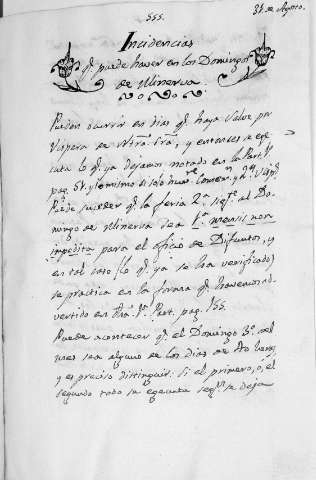 555.
31. de Agosto.
Incidencias
q.e puede haver en los Domingos
de Minerva.
Pueden ocurrir en dias q.e haya Salve por
Vispera de Ntra. Sra., y entonces se exe
cuta lo q.e ya dejamos notado en la Part.
pag. y lo mismo si solo
Puede suceder q.e la feria 2.a sig.te al Do
mingo de Minerva sea 1.a mensis non
impedita para el oficio de Difuntos, y
en tal caso lo q.e ya se ha verificado,
se practica en la forma q.e havemos ad
vertido en Part. pag. 155.
Puede acontecer q.e el Domingo 3.o del
mes sea alguno de los dias de
y es preciso distinguir: si el primero, o, el
segundo todo se egecuta seg.n se deja